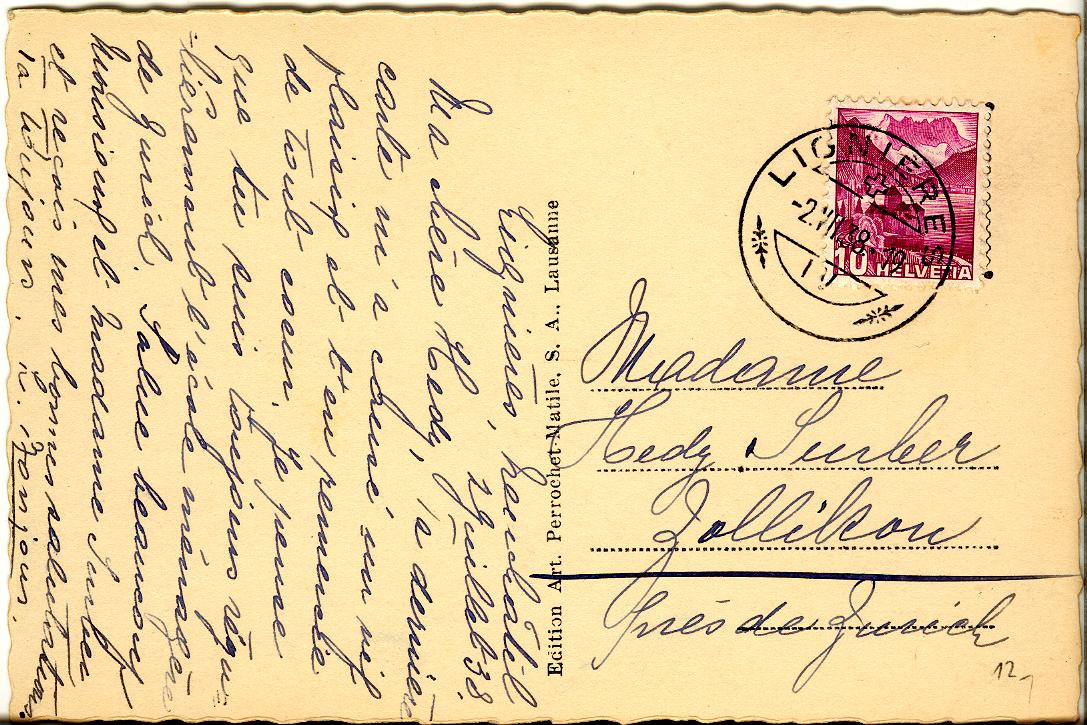 Lignières, Neuchâtel
2 Juillet 38.
Ma chère Hedy, ta dernière
carte m'a causé un vif
plaisir et t'en remercie
de tout cœur. Je pense
que tu suis toujours régu-
lièrement l'école ménagère
de Zurich. Salue beaucoup
Monsieur et Madame Surber
et reçois mes bonnes salutations
Edition Art. Perrochet-Matile, S. A., Lausanne
LIGNIERES
-2.VII.38.-19
10 HELVETIA
Madame
Hedy Surber
Zollikon
Près de Zurich
12.-